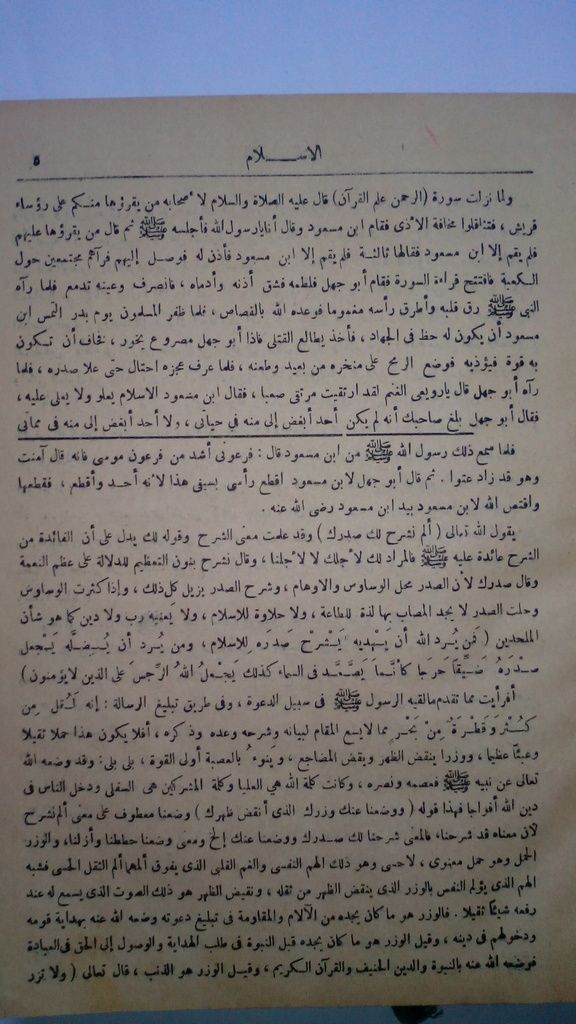 الاســـلام ٥
ولما نزلت سورة (الرحمن علم القرآن) قال عليه الصلاة والسلام لأصحابه من يقرؤها منكم على رؤساء
قريش ، فتثاقلوا مخافة الأذى فقام ابن مسعود وقال أنا يارسول الله فأجلسه ﷺ ثم قال من يقرؤها عليهم
فلم يقم إلا ابن مسعود فقالها ثالثة فلم يقم إلا ابن مسعود فأذن له فوصل إليهم فرآهم مجتمعين حول
الكعبة فافتتح قراءة السورة فقام أبو جهل فلطمه فشق أذنه وأدماه ، فانصرف وعينه تدمع فلما رآه
النبي ﷺ رق قلبه وأطرق رأسه مغموما فوعده الله بالقصاص ، فلما ظفر المسلمون يوم بدر التمس ابن
مسعود أن يكون له حظ فى الجهاد ، فأخذ يطالع القتلى فاذا أبو جهل مصروع يخور ، فخاف أن تكون
به قوة فيؤذيه فوضع الرمح على منخره من بعيد وطعنه ، فلما عرف عجزه احتال حتى علا صدره ، فلما
رآه أبو جهل قال يارويعى الغنم لقد ارتقيت مرتقى صعبا ، فقال ابن مسعود الاسلام يعلو ولا يعلى عليه ،
فقال أبو جهل بلغ صاحبك أنه لم يكن أحد أبغض إلى منه فى حياتى ، ولا أحد أبغض إلى منه فى مماتى
فلما سمع ذلك رسول الله ﷺ من ابن مسعود قال : فرعونى أشد من فرعون موسى فانه قال آمنت
وهو قد زاد عتوا . ثم قال أبو جهل لابن مسعود اقطع رأسى بسيفى هذا لأنه أحد وأقطع ، فقطعها
واقتص الله لابن مسعود بيد ابن مسعود رضى الله عنه .
يقول الله تعالى ( ألم نشرح لك صدرك ) وقد علمت معنى الشرح وقوله لك يدل على أن الفائدة من
الشرح عائدة عليه ﷺ فالمراد لك لأجلك لا لأجلنا ، وقال نشرح بنون التعظيم للدلالة على عظم النعمة
وقال صدرك لأن الصدر محل الوساوس والاوهام ، وشرح الصدر يزيل كل ذلك ، وإذا كثرت الوساوس
وحلت الصدر لا يجد المصاب بها لذة للطاعة ، ولا حلاوة للاسلام ، ولا يعنيه رب ولا دين كما هو شأن
الملحدين ( فَمن يُرد الله أن يَهديه يَشْرَحْ صَدرَه لِلإسلام ، ومن يُرد أن يُـضلَّه يَجعل
صَدْرَهُ ضَيِّقًا حَرجا كأنما يَصَّعَّد فى السماء كذلك يَجْعلُ اللهُ الرِّجسَ على الذين لايؤمنون )
أفرأيت مما تقدم مالقيه الرسول ﷺ فى سبيل الدعوة ، وفى طريق تبليغ الرسالة : إنه لَقُل مِن
كُثْرٍ وَقَطْرَةٌ مِنْ بَحْرٍ مما لايسع المقام لبيانه وشرحه وعده وذكره ، أفلا يكون هذا حملا ثقيلا
وعبئا عظيما ، ووزرا ينقض الظهر ويقض المضاجع ، وينوء بالعصبة أولى القوة ، بلى بلى : وقد وضعه الله
تعالى عن نبيه ﷺ فعصمه ونصره ، وكانت كلمة الله هى العليا وكلمة المشركين هى السفلى ودخل الناس فى
دين الله أفواجا فهذا قوله ( ووضعنا عنك وزرك الذى أنقض ظهرك ) وضعنا معطوف على معنى ألم نشرح
لأن معناه قد شرحنا، فالمعنى شرحنا لك صدرك ووضعنا عنك إلخ ومعنى وضعنا حططنا وأزلنا، والوزر
الحمل وهو حمل معنوى ، لاحسى وهو ذلك الهم النفسى والغم القلبى الذى يفوق ألمهما ألم الثقل الحسى فشبه
الهم الذى يؤلم النفس بالوزر الذى ينقض الظهر من ثقله ، ونقيض الظهر هو ذلك الصوت الذى يسمع له عند
رفعه شيئا ثقيلا . فالوزر هو ما كان يجده من الآلام والمقاومة فى تبليغ دعوته وضعه الله عنه بهداية قومه
ودخولهم فى دينه ، وقيل الوزر هو ما كان يجده قبل النبوة فى طلب الهداية والوصول إلى الحق فى العبادة
فوضعه الله عنه بالنبوة والدين الحنيف والقرآن الكريم ، وقيل الوزر هو الذنب ، قال تعالى ( ولا تزر